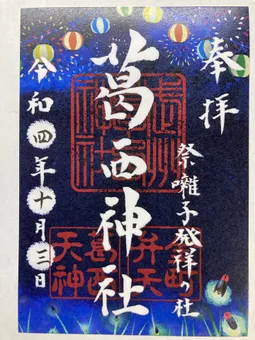 奉拝
祭囃子発祥の社
葛西神社
令和四年十月三日
葛西神社
天神
葛西
弁天
町